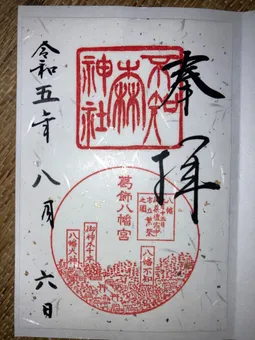 奉拝
不知
森
神社
葛飾八幡宮
八幡不知
御神木千本
八幡大神
令和五年八月六日